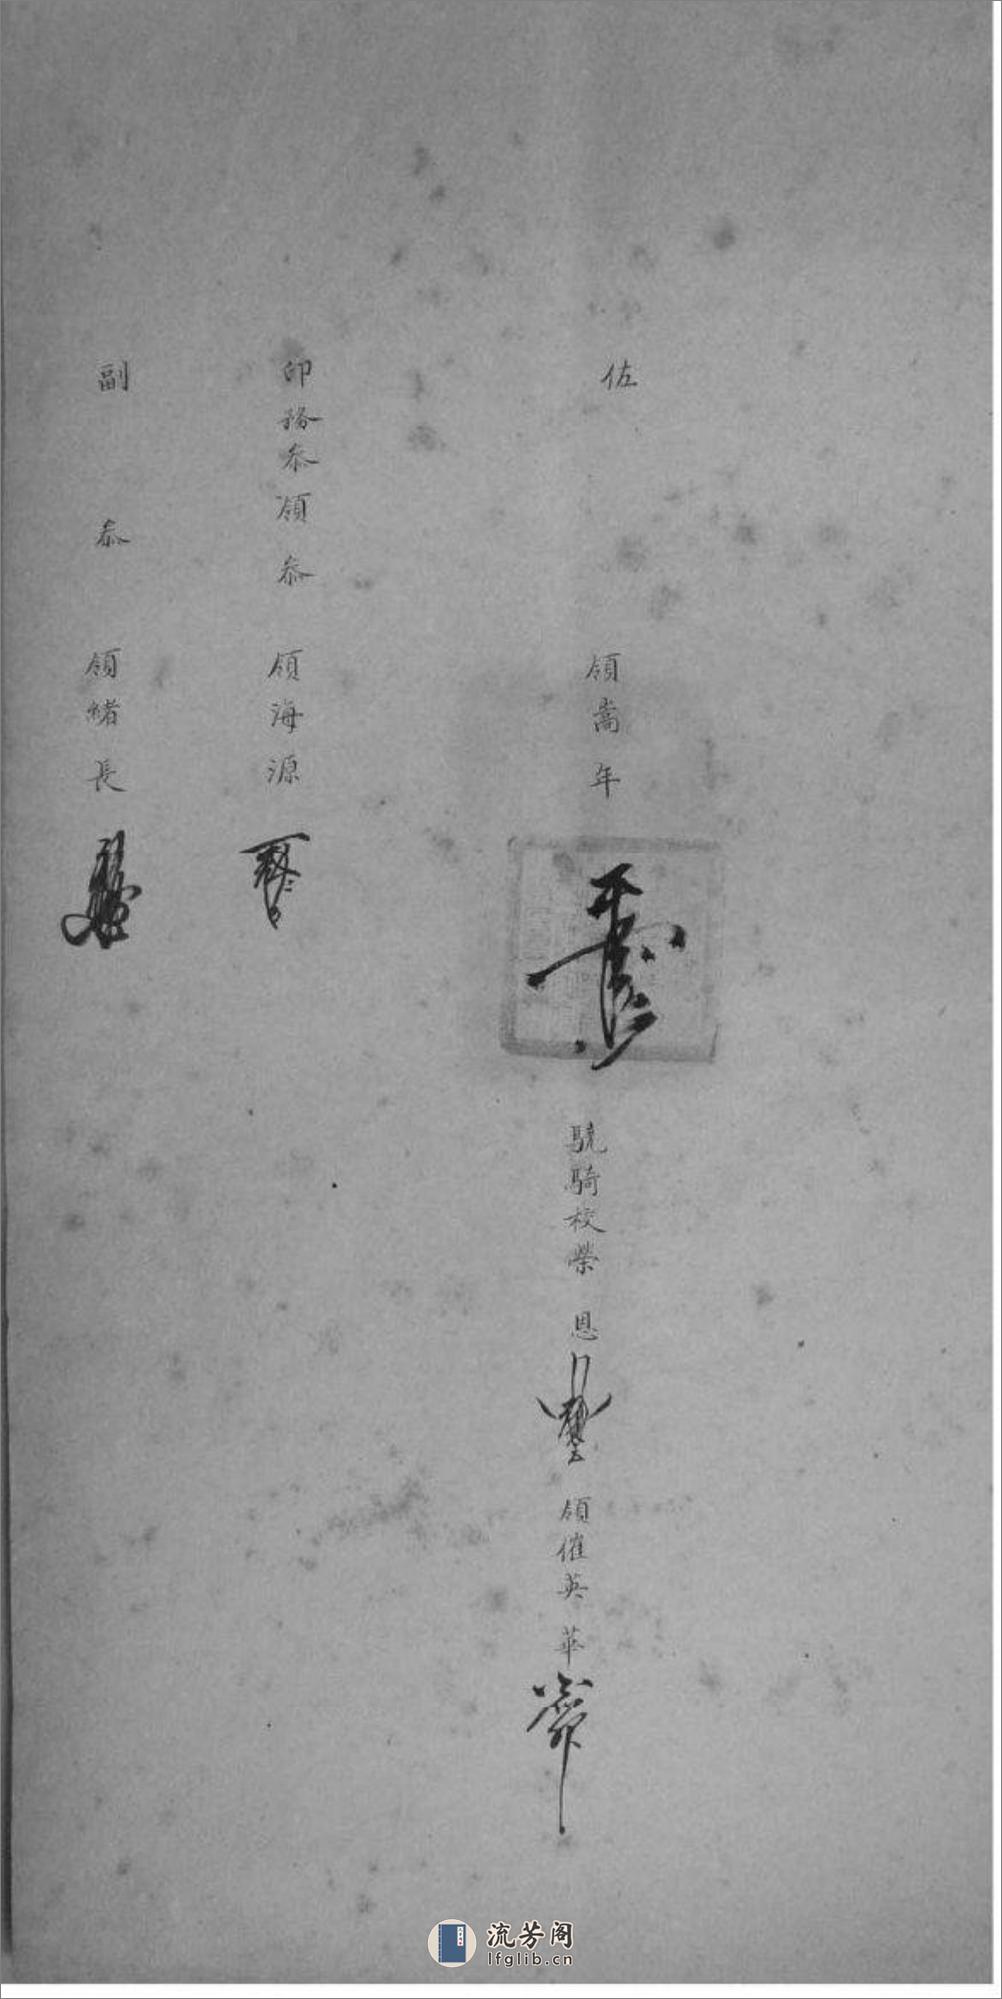 佐領嵩年
驍騎校榮恩
領催英華
印務叅領叅領海源
副叅領緒長
流芳阁
lfglib.cn